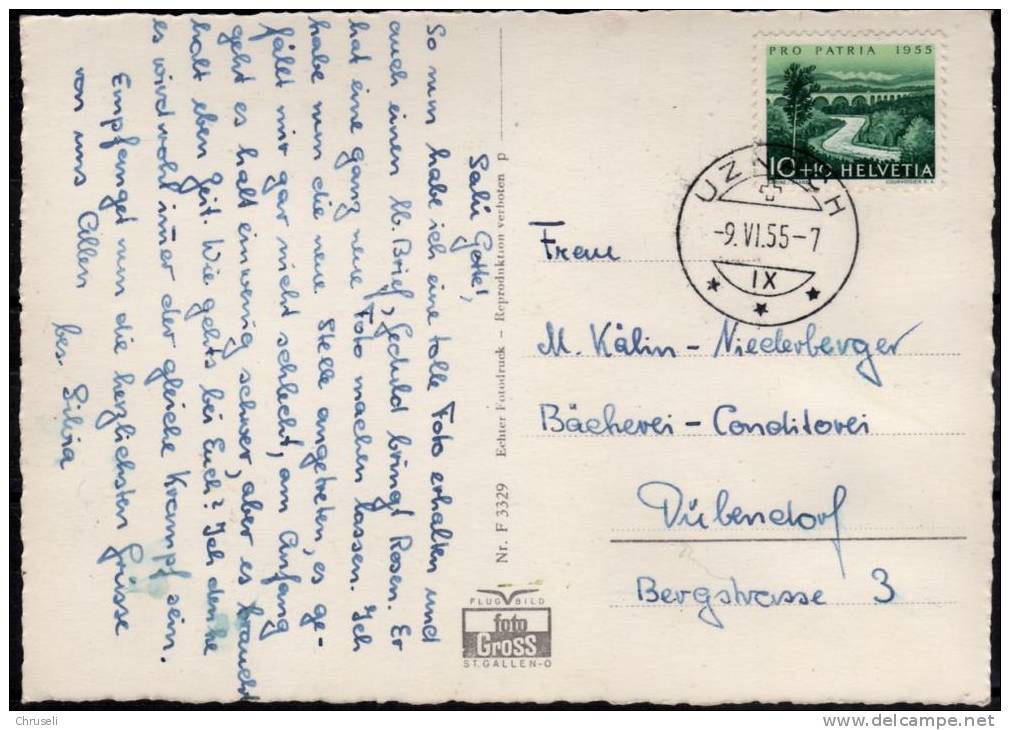 Salü Gotte!,
So nun habe ich eine tolle Foto erhalten und
auch einen lb. Brief, Geduld bringt Rosen. Er
hat eine ganz neue Foto machen lassen. Ich
habe nun die neue Stelle angetreten, es ge-
fällt mir gar nicht schlecht, am Anfang
geht es halt ein wenig schwer, aber es braucht
halt eben Zeit. Wie gehts bei Euch? Ich denke
es wird wohl imer der gleiche Krampf sein.
Empfanget nun die hezlichsten Grüsse
von uns Allen
bes. Silvia
Nr. F 3329 Echter Fotodruck – Reproduktion verboten p
FLUG BILD
foto
Gross
ST. GALLEN-O
PRO PATRIA 1955
10+10 HELVETIA
COURVOISIER S.A.
UZNACH
-9.VI.55-7
IX
Frau
M. Kälin - Niederberger
Bäckerei - Conditorei
Dübendorf
Bergstrasse 3
Chruseli
www.delcampe.net